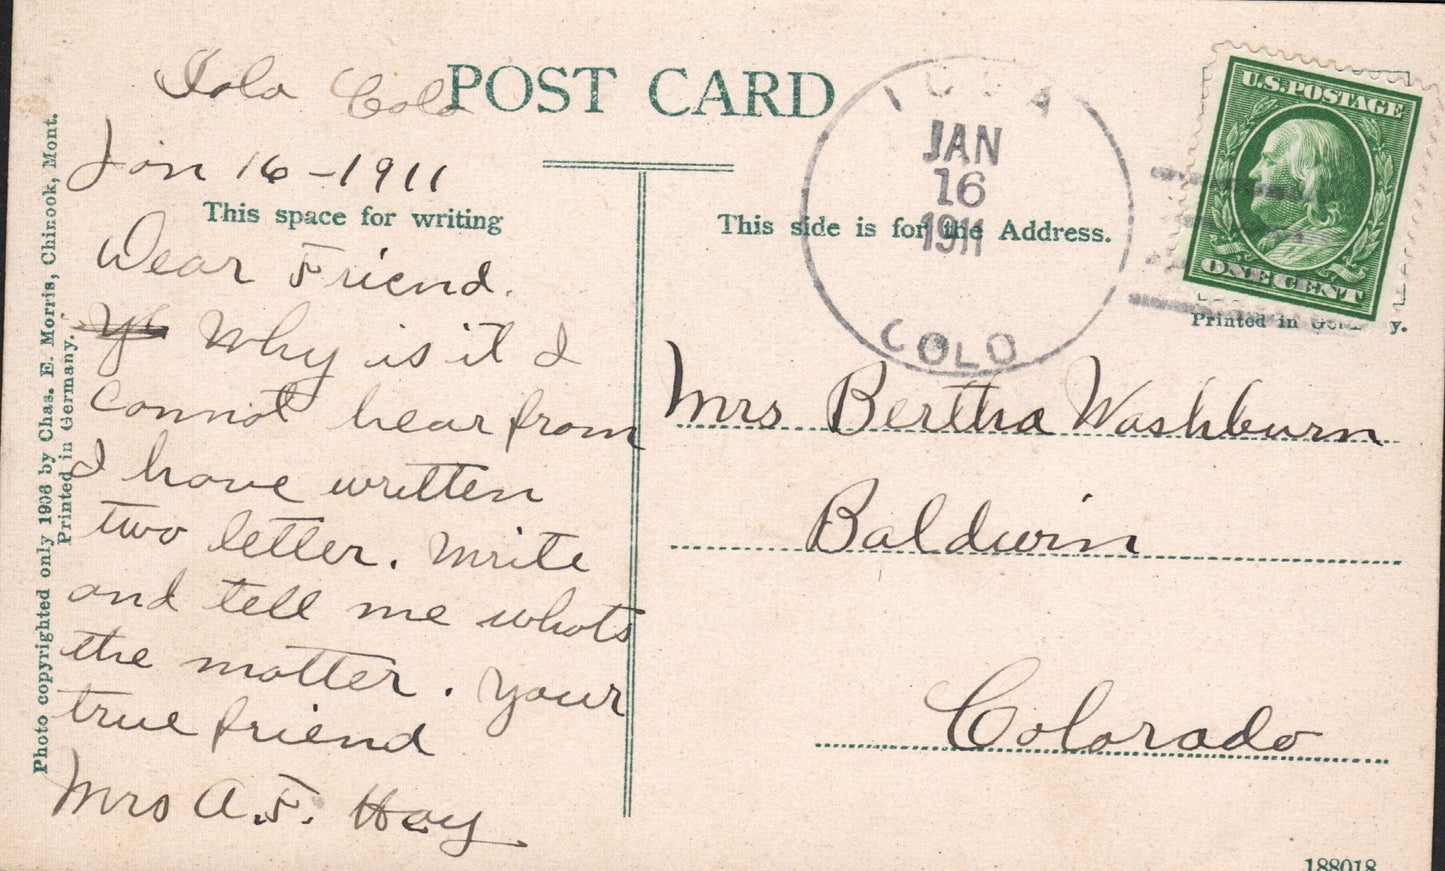 Iola Colo
POST CARD
Jan 16-1911
This space for writing
Dear Friend.
Why is it I
cannot hear from
I have written
two letter. Write
and tell me whats
the matter. Your
true friend
Mrs A.F. Hay
Photo copyrighted only 1908 by Chas. E. Morris, Chinook, Mont.
Printed in Germany.
This side is for the Address.
JAN
16
1911
COLO
U.S.POSTAGE
ONE CENT
Printed in
Mrs Bertha Washburn
Baldwin
Colorado
188018